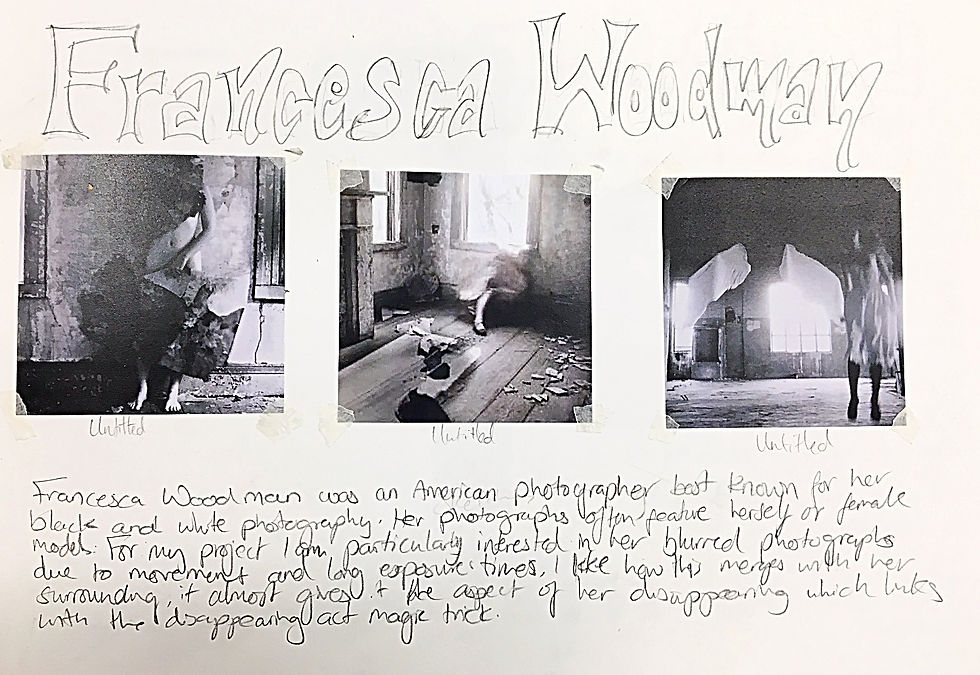 Francesca Woodman
Untitled
Untitled
Untitled
Francesca Woodman was an American photographer best known for her
black and white photography. Her photographs often feature herself or female
models. For my project I am particularly interested in her blurred photographs
due to movement and long exposure times, I like how this merges with her
surrounding, it almost gives it the aspect of her disappearing which links
with the disappearing act magic trick.